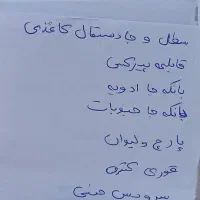 سطل و جادستمال کاغذی
قابلمه پیرکس
بانکه جا ادویه
بانکه جا حبوبات
پارچ ولیوان
قوری کتری
سرویس چینی